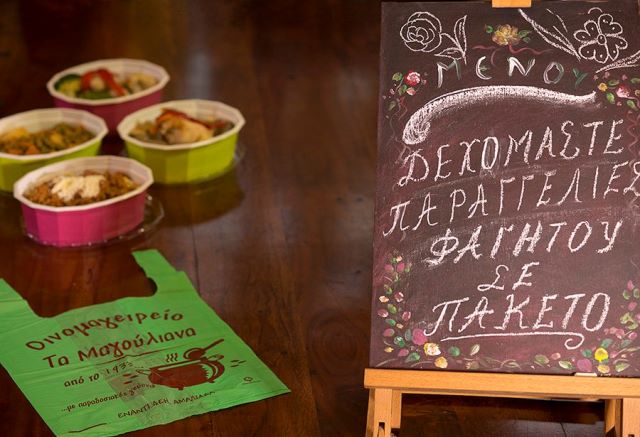 ΜΕΝΟΥ
ΔΕΧΟΜΑΣΤΕ
ΠΑΡΑΓΓΕΛΙΕΣ
ΦΑΓΗΤΟΥ
ΣΕ
ΠΑΚΕΤΟ
Οινομαγειρείο
Τα Μαγούλιανα
από το
...με παραδοσιακές γεύσεις
ΕΝΑΝΤΙ ΔΕΗ ΑΜΑΛΙΑΔΑ